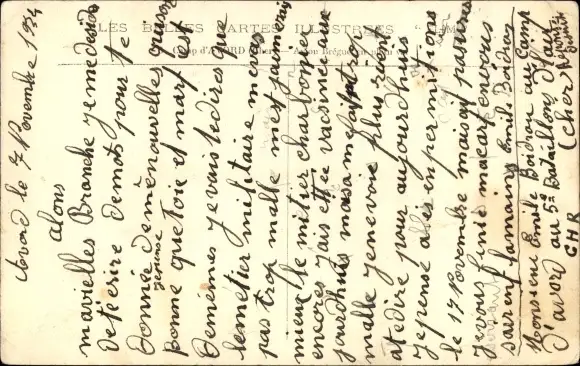 LES BELLES CARTES ILLUSTRÉES
Camp d'AVORD (Cher) Avion Bréguet
Avord le 7 Novembre 1934
alons
mavielles Branche jemedecide
detecrire demots pour te
Donnée demènouvelles quison
Bonne quetoie et marf est
jépense
Demémes jevais tedires que
lemetier militaire meva
pas trop malle mes jaimerais
mieux le mitier charbonier
encores jais etter vaccinée aux
jourdhuis masa mefait trop
malle jenevoie plus rient
atedire pour aujourdhuis
jepense allés enpermitions
le 17 Novembre maisa pasures
jevous finie macart envous
sairent lamains Emile Boidron
Monsieur Emile Boidron au Camp
d'avord au 5e Bataillon de
(cher)
CHR